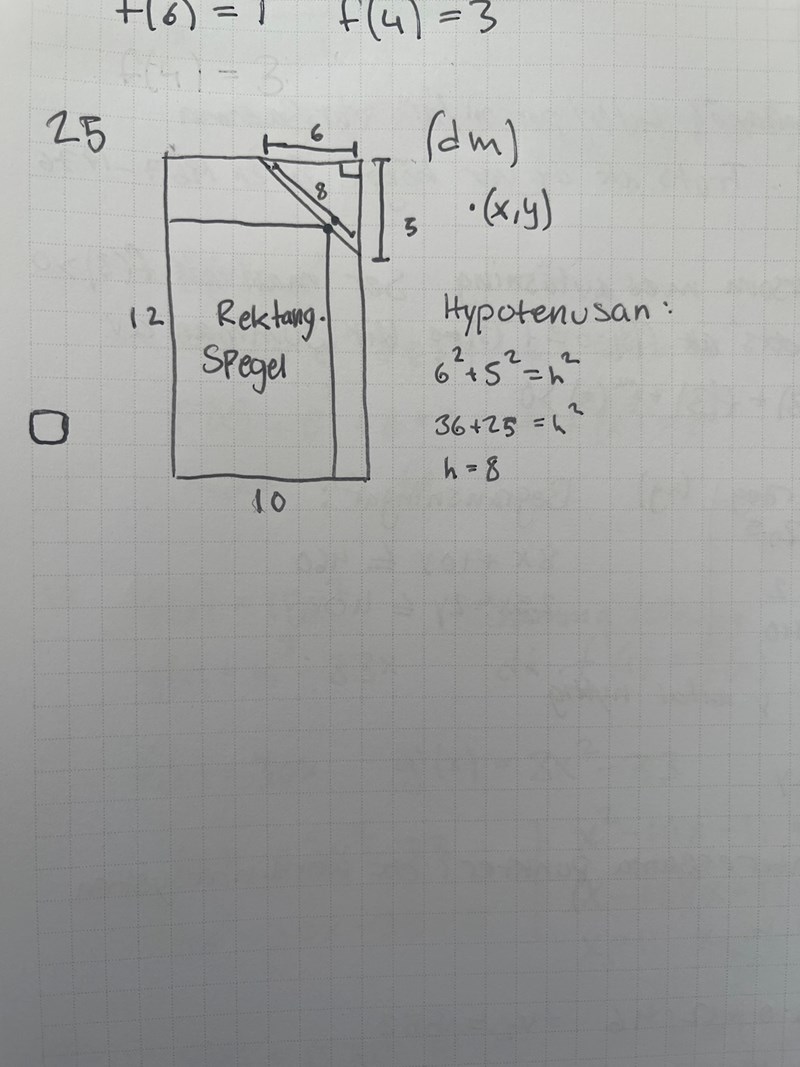 f(6) = 1 f(4) = 3
f(4) = 3
25
6
(dm)
8
5
·(x,y)
12
Rektang.
Spegel
10
Hypotenusan:
6² + 5² = h²
36 + 25 = h²
h = 8